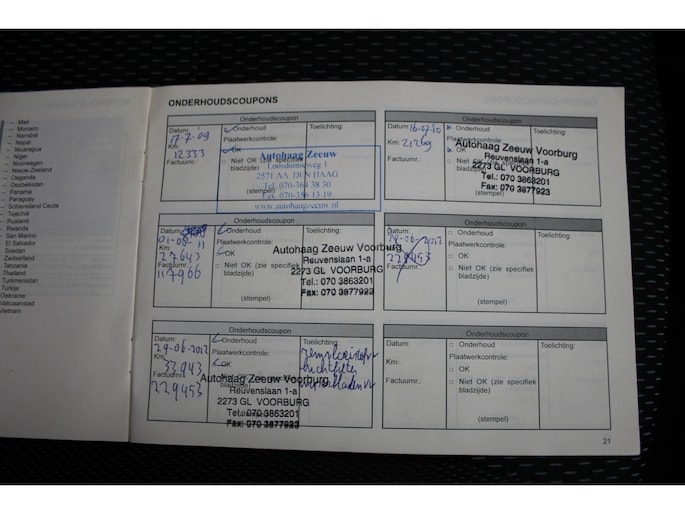 – Mali
– Monaco
– Namibië
– Nepal
– Nicaragua
– Niger
– Noorwegen
– Nieuw-Zeeland
– Oeganda
– Oezbekistan
– Panama
– Paraguay
– Schiereiland Ceuta
– Tsjechië
– Rusland
– Rwanda
– San Marino
– El Salvador
– Soedan
– Zwitserland
Tanzania
Thailand
Turkmenistan
Turkije
Oekraine
Vaticaanstad
Vietnam
ONDERHOUDSCOUPONS
Onderhoudscoupon
Datum:
17-7-09
Km:
12333
Factuurnr.:
Onderhoud
Plaatwerkcontrole:
OK
Niet OK (zie specifiek
bladzijde)
(stempel)
Toelichting:
Autohaag Zeeuw
2571 AA DEN HAAG
Tel. 070-364 38 30
Fax. 070-356 13 19
www.autohaagzeeuw.nl
Onderhoudscoupon
Datum:
16-07-10
Km:
21269
Onderhoud
Plaatwerkcontrole:
OK
Toelichting:
Autohaag Zeeuw Voorburg
Reuvenslaan 1-a
2273 GL VOORBURG
Tel.: 070 3863201
Fax: 070 3877923
Onderhoudscoupon
01-08-11
Km:
27643
Factuurnr.:
117966
Onderhoud
Plaatwerkcontrole:
OK
Niet OK (zie specifiek
bladzijde)
(stempel)
Toelichting:
Autohaag Zeeuw Voorburg
Reuvenslaan 1-a
2273 GL VOORBURG
Tel.: 070 3863201
Fax: 070 3877923
Onderhoudscoupon
Datum:
29-06-2012
Km:
229453
Factuurnr.:
Onderhoud
Plaatwerkcontrole:
OK
Niet OK (zie specifiek
bladzijde)
(stempel)
Toelichting:
Onderhoudscoupon
Datum:
29-06-2012
Km:
33943
Factuurnr.:
229453
Onderhoud
Plaatwerkcontrole:
OK
Niet OK
bladzijde)
Toelichting:
luchtfilter
Autohaag Zeeuw Voorburg
Reuvenslaan 1-a
2273 GL VOORBURG
Tel.: 070 3863201
Fax: 070 3877923
Onderhoudscoupon
Datum:
Km:
Factuurnr.:
Onderhoud
Plaatwerkcontrole:
OK
Niet OK (zie specifiek
bladzijde)
(stempel)
Toelichting:
21